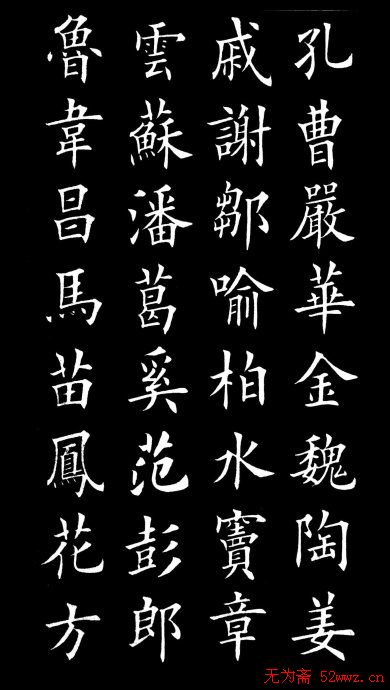 孔曹嚴華金魏陶姜
戚謝鄒喻柏水竇章
雲蘇潘葛奚范彭郎
魯韋昌馬苗鳳花方
无为斋 52wwz.cn